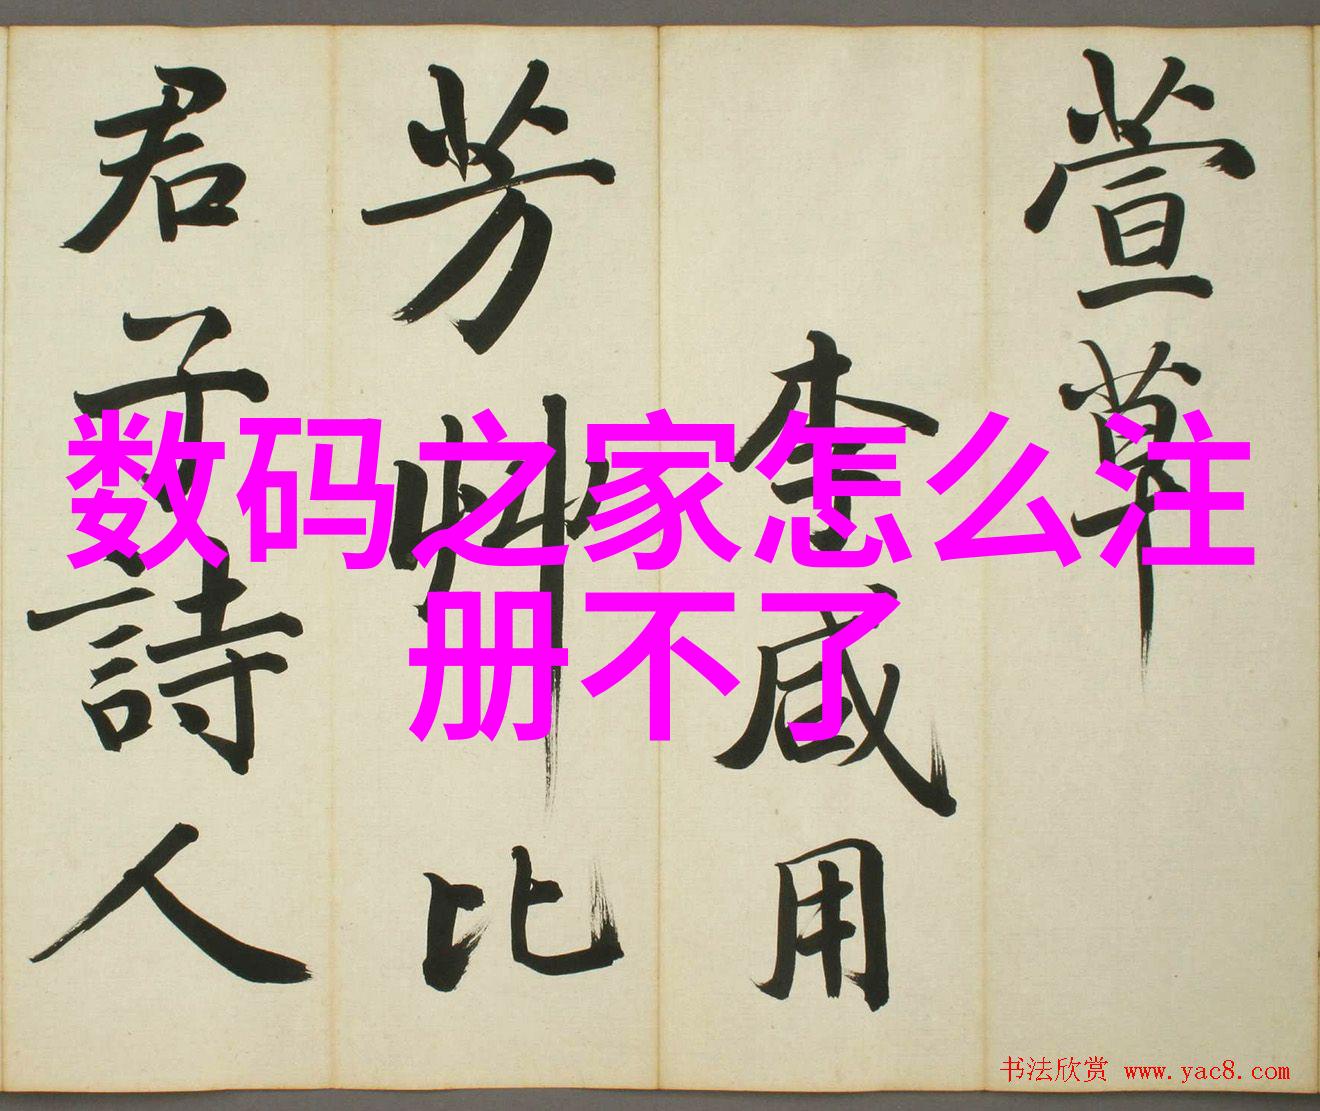 萱草
李咸用
芳艸比
君子詩人
数码之家怎么注
册不了
书法欣赏 www.yac8.com